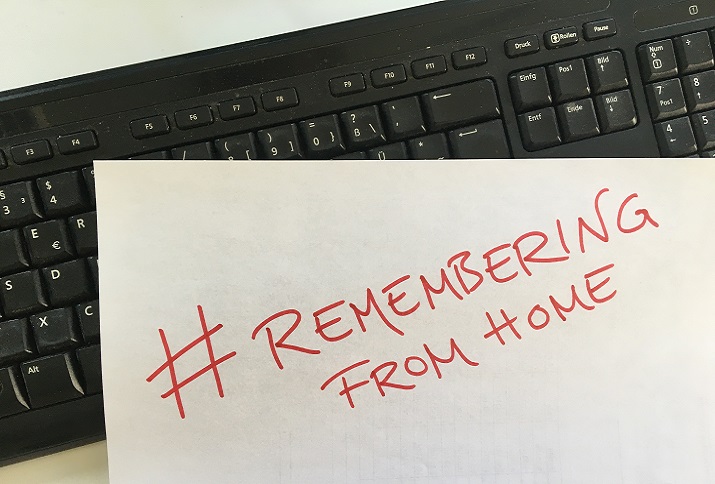 Druck Rollen Pause
F9 F10 F11 F12
Einfg Pos1 Bild
Entf Ende Bild
Num
F3 F4 F5 F6 F7 F8
7 8
Pos1
4 5
§ $
3 3 4
) = ?
9 0 } ß \
E R
€
S D
X C
Alt
#REMEMBERING
FROM HOME